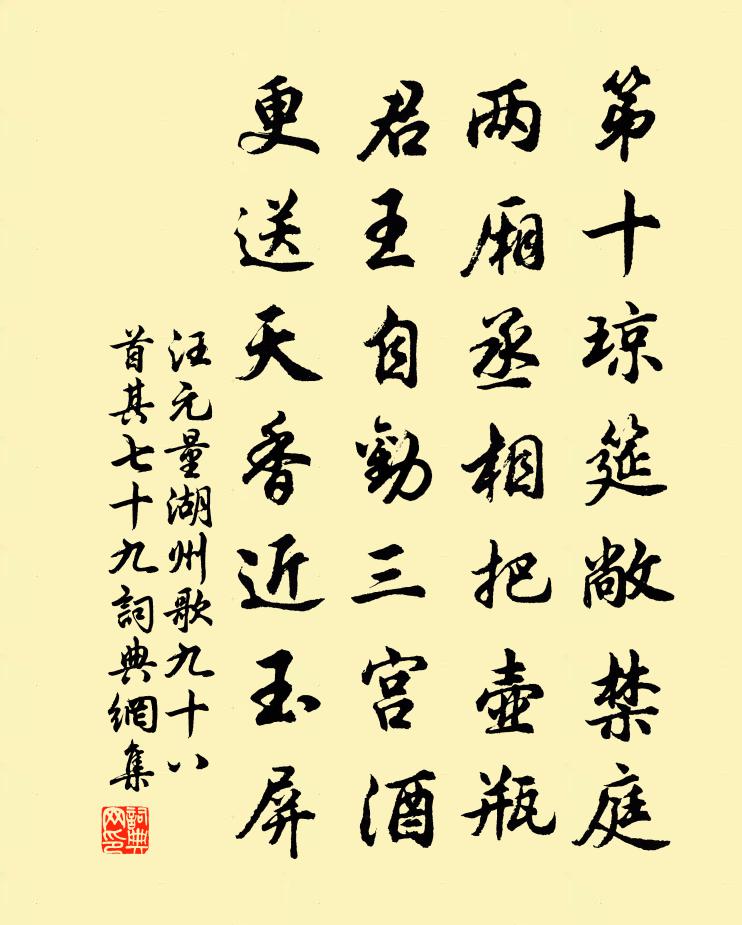 第十琼筵敞禁庭
两厢丞相把壶瓶
君王自勸三宫酒
更送天香近玉屏
汪元量湖州歌九十八
首其七十九詞典網集
詞典网印